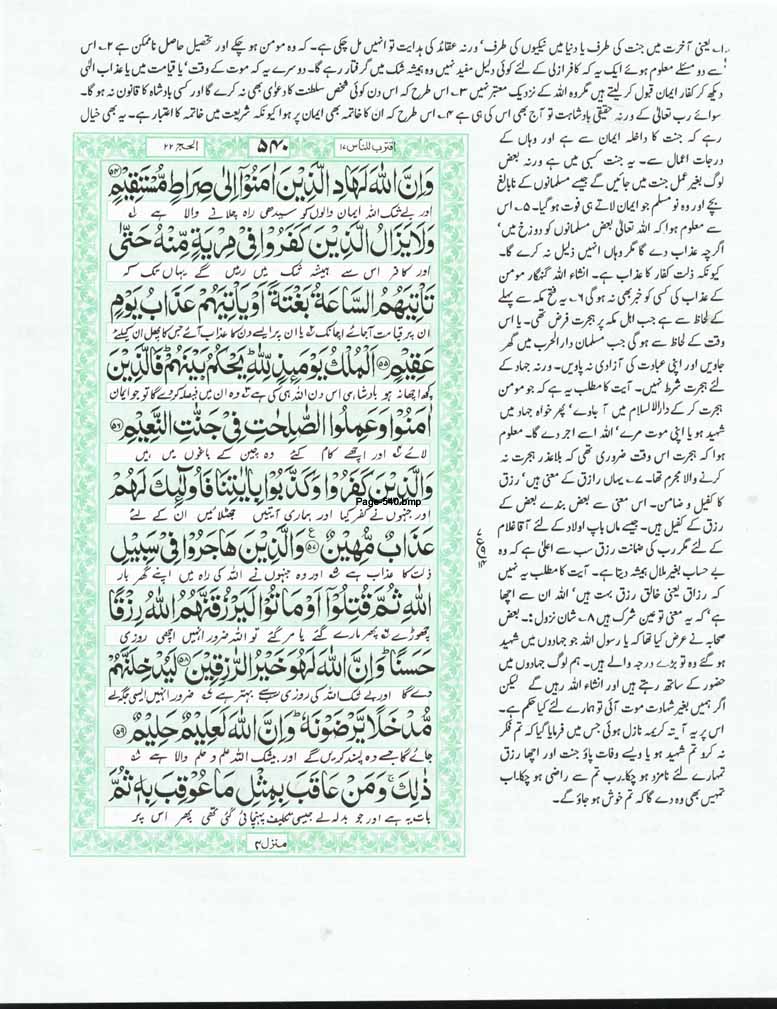 ۱۔ یعنی آخرت میں جنت کی طرف یا دنیا میں نیکیوں کی طرف' ورنہ عقائد کی ہدایت تو انہیں مل چکی ہے۔ کہ وہ مومن ہو چکے اور تحصیل حاصل ناممکن ہے ۲۔ اس
سے دو مسئلے معلوم ہوئے ایک یہ کہ کافر ازلی کے لئے کوئی دلیل مفید نہیں وہ ہمیشہ شک میں گرفتار رہے گا۔ دوسرے یہ کہ موت کے وقت' یا قیامت میں یا عذاب الٰہی
دیکھ کر کفار ایمان قبول کر لیتے ہیں مگر وہ اللہ کے نزدیک معتبر نہیں ۳۔ اس طرح کہ اس دن کوئی شخص سلطنت کا دعویٰ بھی نہ کرے گا اور کسی بادشاہ کا قانون نہ ہو گا۔
سوائے رب تعالیٰ کے ورنہ حقیقی بادشاہت تو آج بھی اس کی ہی ہے ۴۔ اس طرح کہ ان کا خاتمہ بھی ایمان پر ہوا کیونکہ شریعت میں خاتمہ کا اعتبار ہے۔ یہ بھی خیال
رہے کہ جنت کا داخلہ ایمان سے ہے اور وہاں کے
درجات اعمال سے۔ یہ جنت کسبی میں ہے ورنہ بعض
لوگ بغیر عمل جنت میں جائیں گے جیسے مسلمانوں کے نابالغ
بچے اور وہ نو مسلم جو ایمان لاتے ہی فوت ہو گیا۔ ۵۔ اس
سے معلوم ہوا کہ اللہ تعالیٰ بعض مسلمانوں کو دوزخ میں'
اگرچہ عذاب دے گا مگر وہاں انہیں ذلیل نہ کرے گا۔
کیونکہ ذلت کفار کا عذاب ہے۔ انشاء اللہ گنہگار مومن
کے عذاب کی کسی کو خبر بھی نہ ہو گی ۶۔ یہ فتح مکہ سے پہلے
کے لحاظ سے ہے جب اہل مکہ پر ہجرت فرض تھی۔ یا اس
وقت کے لحاظ سے ہو گی جب مسلمان دار الحرب میں گھر
جاویں اور اپنی عبادت کی آزادی نہ پاویں۔ ورنہ جہاد کے
لئے ہجرت شرط نہیں۔ آیت کا مطلب یہ ہے کہ جو مومن
ہجرت کر کے دارالاسلام میں آ جاوے' پھر خواہ جہاد میں
شہید ہو یا اپنی موت مرے' اللہ اسے اجر دے گا۔ معلوم
ہوا کہ ہجرت اس وقت ضروری تھی کہ بلاعذر ہجرت نہ
کرنے والا مجرم تھا۔ ۷۔ یہاں رازق کے معنی ہیں' رزق
کا کفیل و ضامن۔ اس معنی سے بعض بندے بعض کے
رزق کے کفیل ہیں۔ جیسے ماں باپ اولاد کے لئے آقا غلام
کے لئے مگر رب کی ضمانت رزق سب سے اعلیٰ ہے کہ وہ
بے حساب بغیر ملال ہمیشہ دیتا ہے۔ آیت کا مطلب یہ نہیں
کہ رزاق یعنی خالق رزق بہت ہیں' اللہ ان سے اچھا
ہے' کہ یہ معنی تو عین شرک ہیں ۸۔ شان نزول :۔ بعض
صحابہ نے عرض کیا تھا کہ یا رسول اللہ جو جہادوں میں شہید
ہو گئے وہ تو بڑے درجہ والے ہیں۔ ہم لوگ جہادوں میں
حضور کے ساتھ رہتے ہیں اور انشاء اللہ رہیں گے لیکن
اگر ہمیں بغیر شہادت موت آئی تو ہمارے لئے کیا حکم ہے۔
اس پر یہ آیتہ کریمہ نازل ہوئی جس میں فرمایا گیا کہ تم فکر
نہ کرو تم شہید ہو یا ویسے وفات پاؤ جنت اور اچھا رزق
تمہارے لئے نامزد ہو چکا۔ رب تم سے راضی ہو چکا۔ اب
تمہیں بھی وہ دے گا کہ تم خوش ہو جاؤ گے۔
اقترب للناس ۱۷
۵۴۰
الحج ۲۲
وَاِنَّ اللّٰهَ لَهَادِ الَّذِيْنَ اٰمَنُوْۤا اِلٰى صِرَاطٍ مُّسْتَقِيْمٍ ۵۴
اور بے شک اللہ ایمان والوں کو سیدھی راہ چلانے والا ہے
وَلَا يَزَالُ الَّذِيْنَ كَفَرُوْا فِيْ مِرْيَةٍ مِّنْهُ حَتّٰى
اور کافر اس سے ہمیشہ شک میں رہیں گے یہاں تک کہ
تَاْتِيَهُمُ السَّاعَةُ بَغْتَةً اَوْ يَاْتِيَهُمْ عَذَابُ يَوْمٍ
ان پر قیامت آجائے اچانک یا ان پر ایسے دن کا عذاب آئے جس کا پھل ان کیلئے
عَقِيْمٍ ۵۵ اَلْمُلْكُ يَوْمَئِذٍ لِّلّٰهِ يَحْكُمُ بَيْنَهُمْ فَالَّذِيْنَ
کچھ اچھا نہ ہو بادشاہی اس دن اللہ ہی کی ہے وہ ان میں فیصلہ کر دے گا تو جو ایمان
اٰمَنُوْا وَعَمِلُوا الصّٰلِحٰتِ فِيْ جَنّٰتِ النَّعِيْمِ ۵۶
لائے اور اچھے کام کئے وہ چین کے باغوں میں ہیں
وَالَّذِيْنَ كَفَرُوْا وَكَذَّبُوْا بِاٰيٰتِنَا فَاُولٰٓئِكَ لَهُمْ
Page-540.bmp
اور جنہوں نے کفر کیا اور ہماری آیتیں جھٹلائیں ان کے لئے
عَذَابٌ مُّهِيْنٌ ۵۷ وَالَّذِيْنَ هَاجَرُوْا فِيْ سَبِيْلِ
ذلت کا عذاب ہے اور وہ جنہوں نے اللہ کی راہ میں اپنے گھر بار
اللّٰهِ ثُمَّ قُتِلُوْۤا اَوْ مَاتُوْا لَيَرْزُقَنَّهُمُ اللّٰهُ رِزْقًا
چھوڑے پھر مارے گئے یا مر گئے تو اللہ ضرور انہیں اچھی روزی
حَسَنًا وَاِنَّ اللّٰهَ لَهُوَ خَيْرُ الرّٰزِقِيْنَ ۵۸ لَيُدْخِلَنَّهُمْ
دے گا اور بے شک اللہ کی روزی سب سے بہتر ہے ضرور انہیں ایسی جگہ لے
مُّدْخَلًا يَّرْضَوْنَهٗ وَاِنَّ اللّٰهَ لَعَلِيْمٌ حَلِيْمٌ ۵۹
جائے گا جسے وہ پسند کریں گے اور بیشک اللہ علم و حلم والا ہے
ذٰلِكَ وَمَنْ عَاقَبَ بِمِثْلِ مَا عُوْقِبَ بِهٖ ثُمَّ
بات یہ ہے اور جو بدلہ لے جیسی تکلیف پہنچائی گئی تھی پھر اس پر
منزل ۴